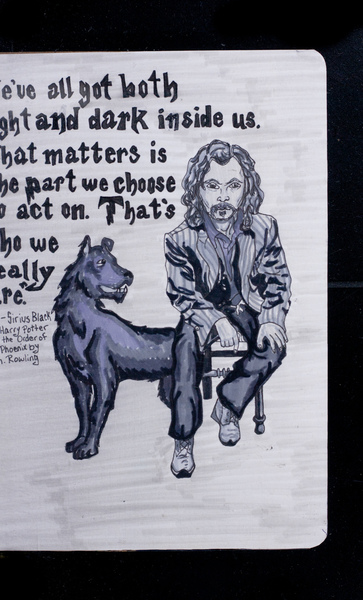 e've all got both
ght and dark inside us.
hat matters is
he part we choose
o act on. That's
ho we
eally
re."
-Sirius Black
Harry Potter
the "Order of
Phoenix by
. Rowling